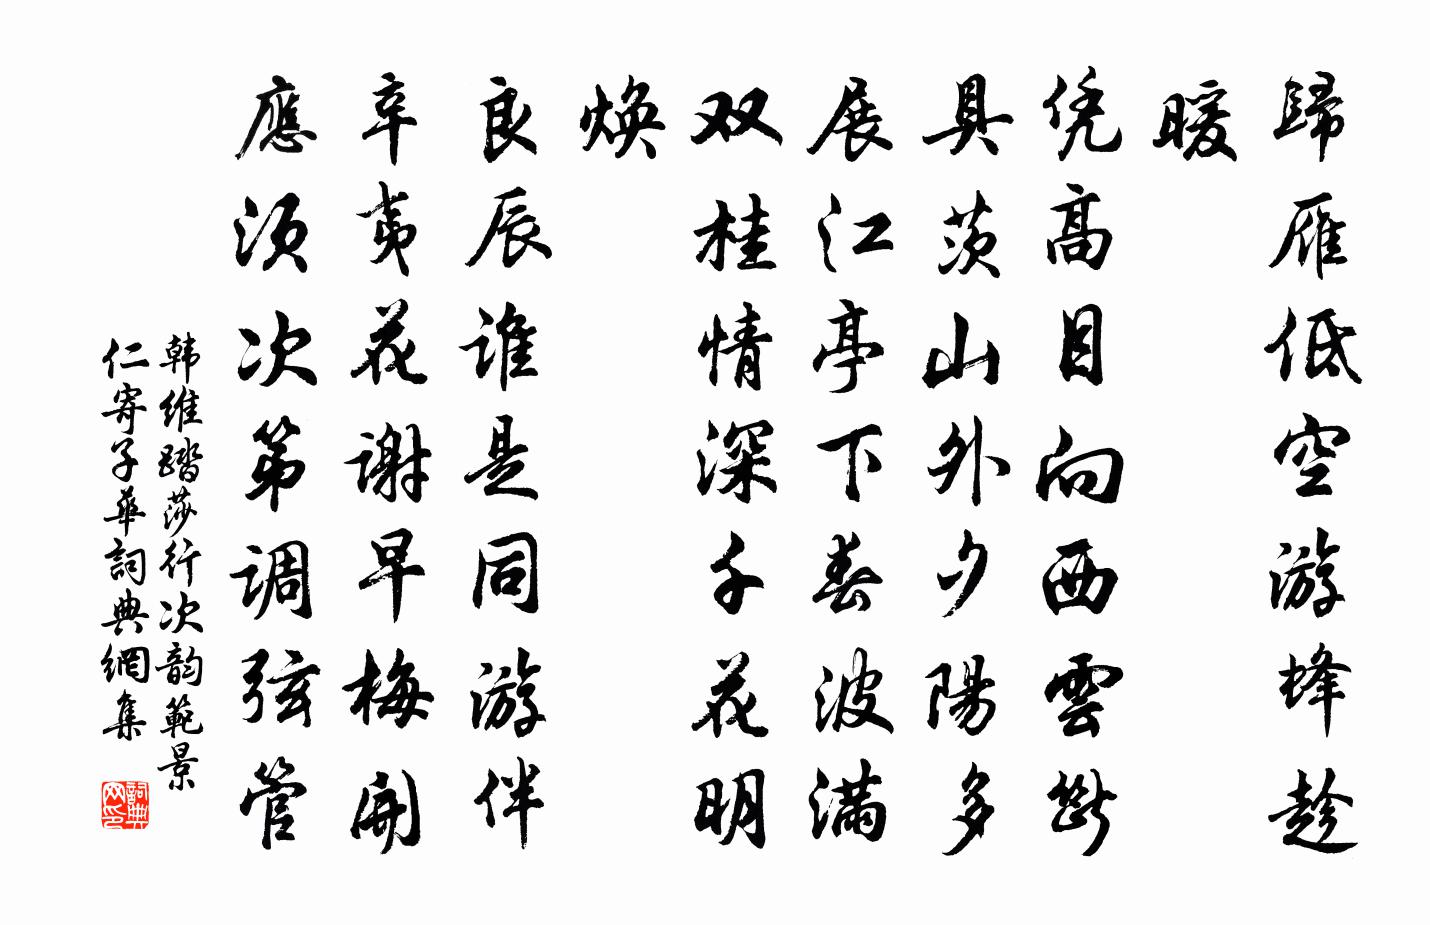 歸雁低空游蜂趁
暖
凭高目向西雲斷
具茨山外夕陽多
展江亭下春波滿
双桂情深千花明
煥
良辰誰是同游伴
辛夷花謝早梅開
應须次第调弦管
韩維踏莎行次韵範景
仁寄子華詞典網集
詞典网印